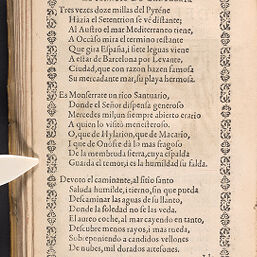 Tres vezes doze millas del Pyrène
Hàzia el Setentrion se vè distante;
Al Austro el mar Mediterraneo tiene,
A Occàso mira el termino restante
Que gira España, i siete leguas viene
A estar de Barcelona por Levante,
Ciudad, que con razon hazen famosa
Su mercadante mar, su playa hermosa.
Es Monserrate un rico Santuario,
Donde el Señor dispensa generoso
Mercedes mil, un siempre abierto erario
A quien lo visitò menesteroso.
O, que de Hylarion, que de Macario,
I que de Onofre dà lo mas fragoso
De la membruda sierra, cuya espalda
Guarda el temor, i es la humildad su falda.
Devoto el caminante, al sitio santo
Saluda humilde, i tierno, sin que pueda
Descaminar las aguas de su llanto,
Donde la soledad no se las veda.
El aureo coche, al mar cayendo en tanto,
Descubre menos rayos, i mas rueda,
Sobreponiendo a candidos vellones
De nubes, mil dorados artesones.